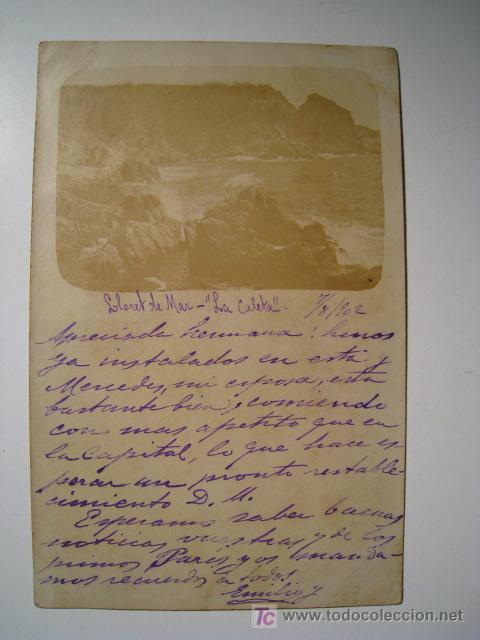 Lloret de Mar - "La Caleta". 7/8/902
Apreciada hermana: henos
ya instalados en esta y
Mercedes, mi esposa, está
bastante bien, comiendo
con mas apetito que en
la Capital, lo que hace es
perar un pronto restable-
cimiento D. M.
Esperamos saber buenas
noticias vuestras y de los
primos Parés y os manda-
mos recuerdos a todos.
Emilio
TC todocoleccion
www.todocoleccion.net